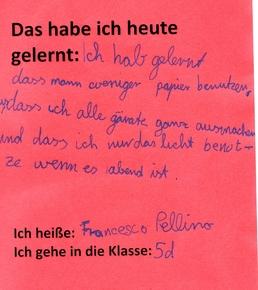 Das habe ich heute
gelernt: Ich hab gelernt
dass mann weniger papier benutzen,
dass ich alle gäräte ganz ausmachen
und dass ich nur das licht benut-
ze wenn es abend ist.
Ich heiße: Francesco Pellino
Ich gehe in die Klasse: 5d